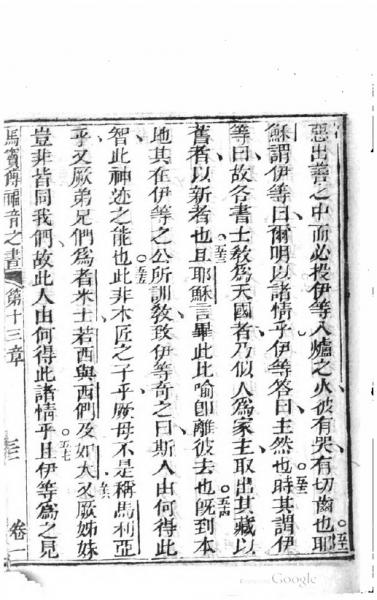 惡出善之中而必投伊等入爐之火彼有哭有切齒也耶
穌謂伊等曰爾明以諸情乎伊等答曰主然也時其謂伊
等曰故各書士教爲天國者乃似人爲家主取出其藏以
舊者以新者也且耶穌言畢此比喻卽離彼去也旣到本
地其在伊等之公所訓教致伊等奇之曰斯人由何得此
智此神迹之能也此非木匠之子乎厥母不是稱馬利亞
乎又厥弟兄們爲者米士若西與西們及如大又厥姊妹
豈非皆同我們故此人由何得此諸情乎且伊等爲之見
馬竇傳福音之書 第十三章 卷一
Google